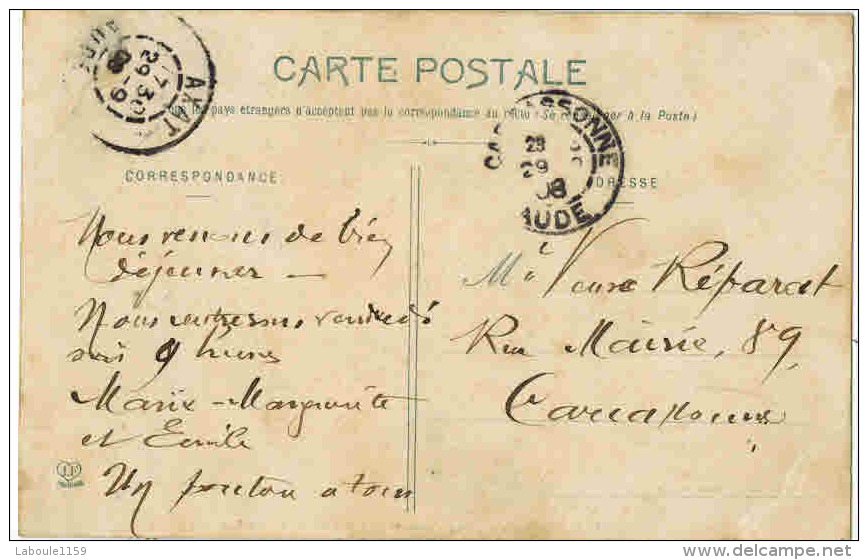 CARTE POSTALE
pays étrangers n'acceptent pas la correspondance au recto (Se à la Poste)
CORRESPONDANCE
Nous venons de bien
déjeuner —
Nous rentrerons vendredi
soir 9 heures
Marie-Marguerite
et Emile
Un pouton a tous
ADRESSE
Veuve Réparat
Rue Mairie, 89
Carcassonne
CARCASSONNE
29
08
AUDE
7 30
29-9
08
AUDE
Laboule1159
©delcampe.net